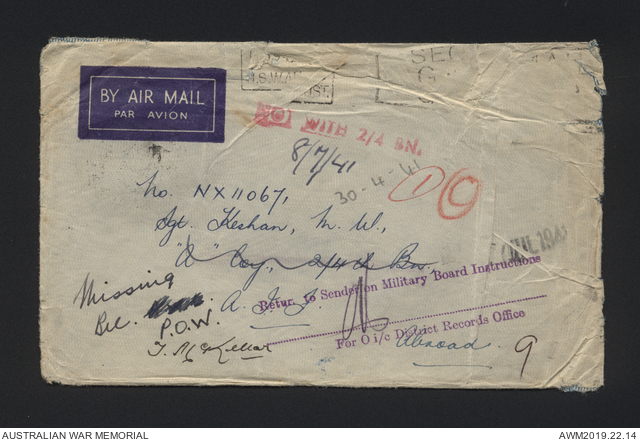 BY AIR MAIL
PAR AVION
N.S.W. AUST.
NOT WITH 2/4 BN.
8/7/41
30-4-41
10
No. NX11067,
Sgt. Keshan, M. W.,
"A" Coy, 2/4th Bn.,
A. I. F.
Abroad.
Missing
Bel. P.O.W.
T. McKellar
Return to Sender on Military Board Instructions
For O i/c District Records Office
9
AUSTRALIAN WAR MEMORIAL
AWM2019.22.14